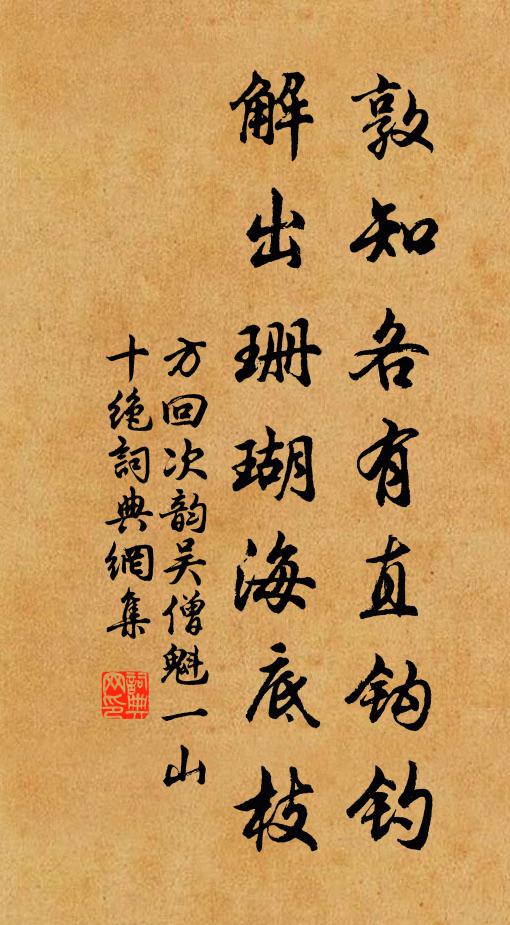 敦知各有直钩钓
解出珊瑚海底枝
方回次韵吴僧魁一山
十绝詞典網集
詞典網印